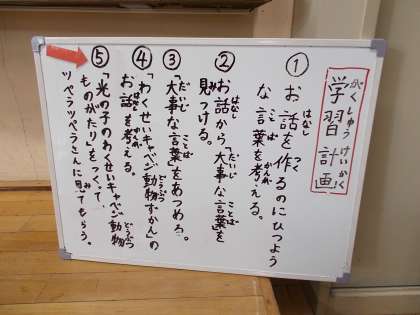 学習計画
がくしゅうけいかく
① お話を作るのにひつよう
な言葉を考える。
② お話から「大事な言葉」を
見つける。
③ 「大事な言葉」をあつめる。
④ 「わくせいキャベジ動物ずかん」の
お話を考える。
⑤ 「光の子のわくせいキャベジ動物
ものがたり」をつくって、
ツペラツペラさんに見てもらう。